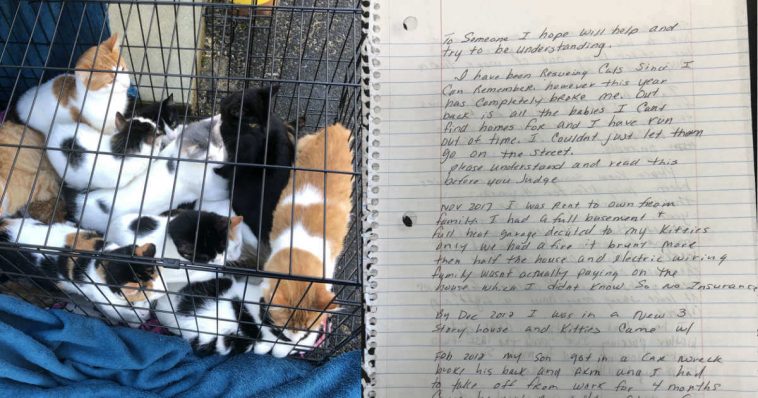 To Someone I hope will help and
try to be understanding.
I have been Rescueing Cats Since I
Can Remember however this year
has Completely broke me. Out
back is all the babies I Cant
find homes for and I have run
out of time. I Couldnt just let them
go on the street.
please understand and read this
before you Judge
Nov 2017 I was Rent to own from
family I had a full basement &
full heat garage decided to my Kitties
only we had a fire it brunt more
then half the house and electric wiring
family wasnt actually paying on the
house which I didnt know So no Insurance
By Dec 2017 I was in a New 3
Story house and Kitties Came w/
Feb 2018 my Son got in a Car wreck
broke his back and Arm and I had
to take off from work for 4 months